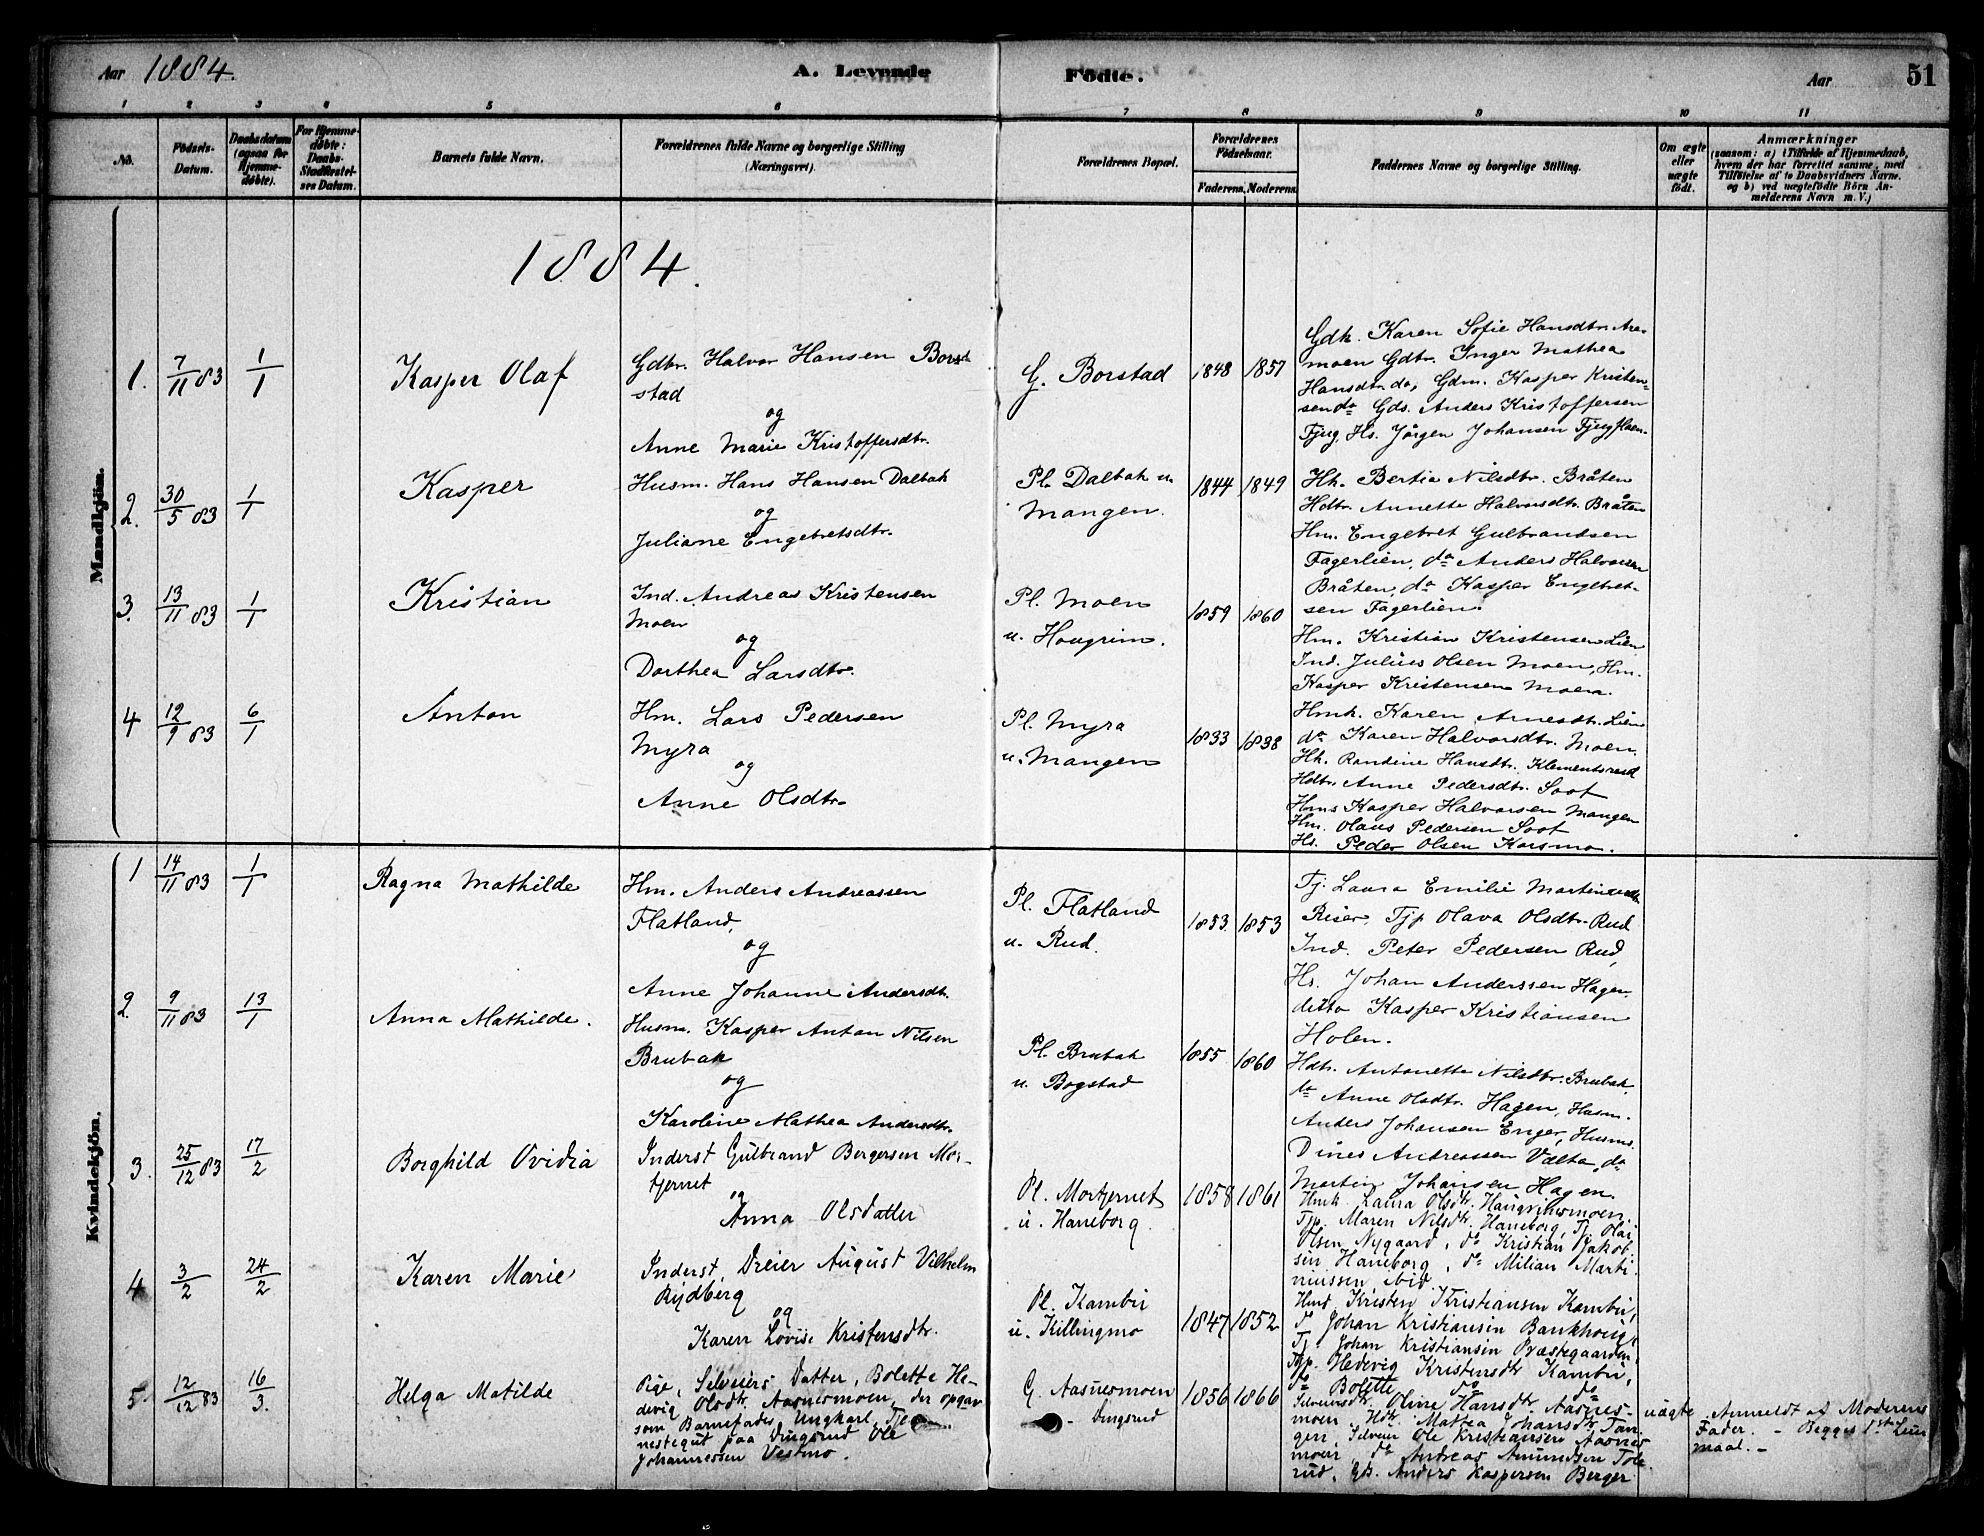 Aar 1884.
A. Levende Fødte.
Aar
51
1 2 3 4 5 6 7 8 9 10 11
No.
Fødsels-
Datum.
Daabsdatum
(ogsaa for
Hjemme-
døbte).
For Hjemme-
døbte:
Daabs-
Stadfæstel-
ses Datum.
Barnets fulde Navn.
Forældrenes fulde Navne og borgerlige Stilling
(Næringsvei).
Forældrenes Bopæl.
Forældrenes
Fødselsaar.
Faderens. Moderens.
Faddernes Navne og borgerlige Stilling.
Om ægte
eller
uægte
født.
Anmærkninger
(saasom: a) i Tilfælde af Hjemmedaab,
hvem der har forrettet samme, med
Tilføielse af to Daabsvidners Navne.
og b) ved uægtefødte Børn An-
melderens Navn m. V.)
1884.
Mandkjön.
1. 7/11 83 1/1
Kasper Olaf
Gdbr. Halvor Hansen Bor-
stad
og
Anne Marie Kristoffersdtr.
G. Borstad
1848 1857
Gdk. Karen Sofie Hansdtr. Are-
moen Gdtr. Inger Mathea
Hansdtr. do, Gdm. Kasper Kristen-
sen do Gds. Anders Kristoffersen
Tjug, Hs. Jørgen Johansen Tjugflaen.
2. 30/5 83 1/1
Kasper
Husm. Hans Hansen Dalbak
og
Juliane Engebretsdtr.
Pl. Dalbak u.
Mangen.
1844 1849
Hk. Bertia Nilsdtr. Bråten
Hdtr. Annette Halvorsdtr. Bråten
Hm. Engebret Gulbrandsen
Fagerlien, do Anders Halvorsen
Bråten, do Kasper Engebret-
sen Fagerlien.
3. 13/11 83 1/1
Kristian
Ind. Andreas Kristensen
Moen
og
Dorthea Larsdtr.
Pl. Moen
u. Hougrim.
1859 1860
Hm. Kristian Kristensen Lien
Ind. Julius Olsen Moen, Hm.
Kasper Kristensen Moen.
Hmk. Karen Arnesdtr. Lien
do Karen Halvorsdtr. Moen.
4 12/9 83 6/1
Anton
Hm. Lars Pedersen
Myra
og
Anne Olsdtr.
Pl. Myra
u. Mangen
1833 1838
Hk. Randine Hansdtr. Klementsrud
Hdtr. Anne Pedersdtr. Soot
Hms Kasper Halvorsen Mangen
Hm. Olaus Pedersen Soot
Hs. Peder Olsen Korsmo.
Kvindekjön.
1 14/11 83 1/1
Ragna Mathilde
Hm. Anders Andreassen
Flatland,
og
Anne Johanne Andersdt.
Pl. Flatland
u. Rud.
1853. 1853
Tj. Laura Emilie Martinsdtr.
Riser, Tjp Olava Olsdtr. Rud
Ind. Peter Pedersen Rud,
Hs. Johan Anderssen Hagen,
ditto Kasper Kristiansen
Holen.
2. 9/11 83 13/1
Anna Mathilde.
Husm. Kasper Anton Nilsen
Brubak
og
Karoline Mathea Andersdtr.
Pl. Brubak
u. Bogstad
1855 1860
Hdtr. Antonette Nilsdtr. Brubak,
do Anne Olsdtr. Hagen, Husm.
Anders Johansen Enger, Husms.
Dines Andreassen Vælta, do
Martin Johansen Hagen.
3. 25/12 83 17/2
Borghild Ovidia
Inderst Gulbrand Bergersen Mor-
tjernet
og
Anna Olsdatter
Pl. Mortjernet
u. Haneborg.
1858 1861
Hmk. Laura Olsdtr. Haugrimsmoen.
Tjp. Maren Nilsdtr. Haneborg, Tj. Olai
Olsen Nygaard, do Kristian Jakob-
sen Haneborg, do Milian Marti-
niussen ibid
4 3/2 24/2
Karen Marie
Inderst, Dreier August Vilhelm
Rydberg
og
Karen Lovise Kristensdtr.
Pl. Kambu
u. Killingmo
1847 1852
Hmd. Kristen Kristiansen Kambu,
T. Johan Kristiansen Bankhoug,
Tj. Johan Kristiansen Præstegaarden,
Tjp. Hedevig Kristensdtr Kambu,
do Bolette do do
5. 12/12 83 16/3.
Helga Matilde
Pige, Selveiers Datter, Bolette He-
devig Olsdtr. Aasnesmoen, der opgav
som Barnefader Ungkarl, Tje-
nestegut paa Dingsrud Ole
Johannessen Vestmo.
G. Aasnesmoen
- Dingsrud
1856 1866
Selveiersdtr. Oline Hansdtr Aasnes-
moen, Hdtr. Mattea Johansdtr Tan-
gen, Selveier Ole Kristiansen Aasnes-
moen, do Andreas Amundsen Tole-
rud, Gbs. Anders Kaspersen Berger
uægte
Anmeldt af Moderens
Fader. - Begges 1ste Leier-
maal. -